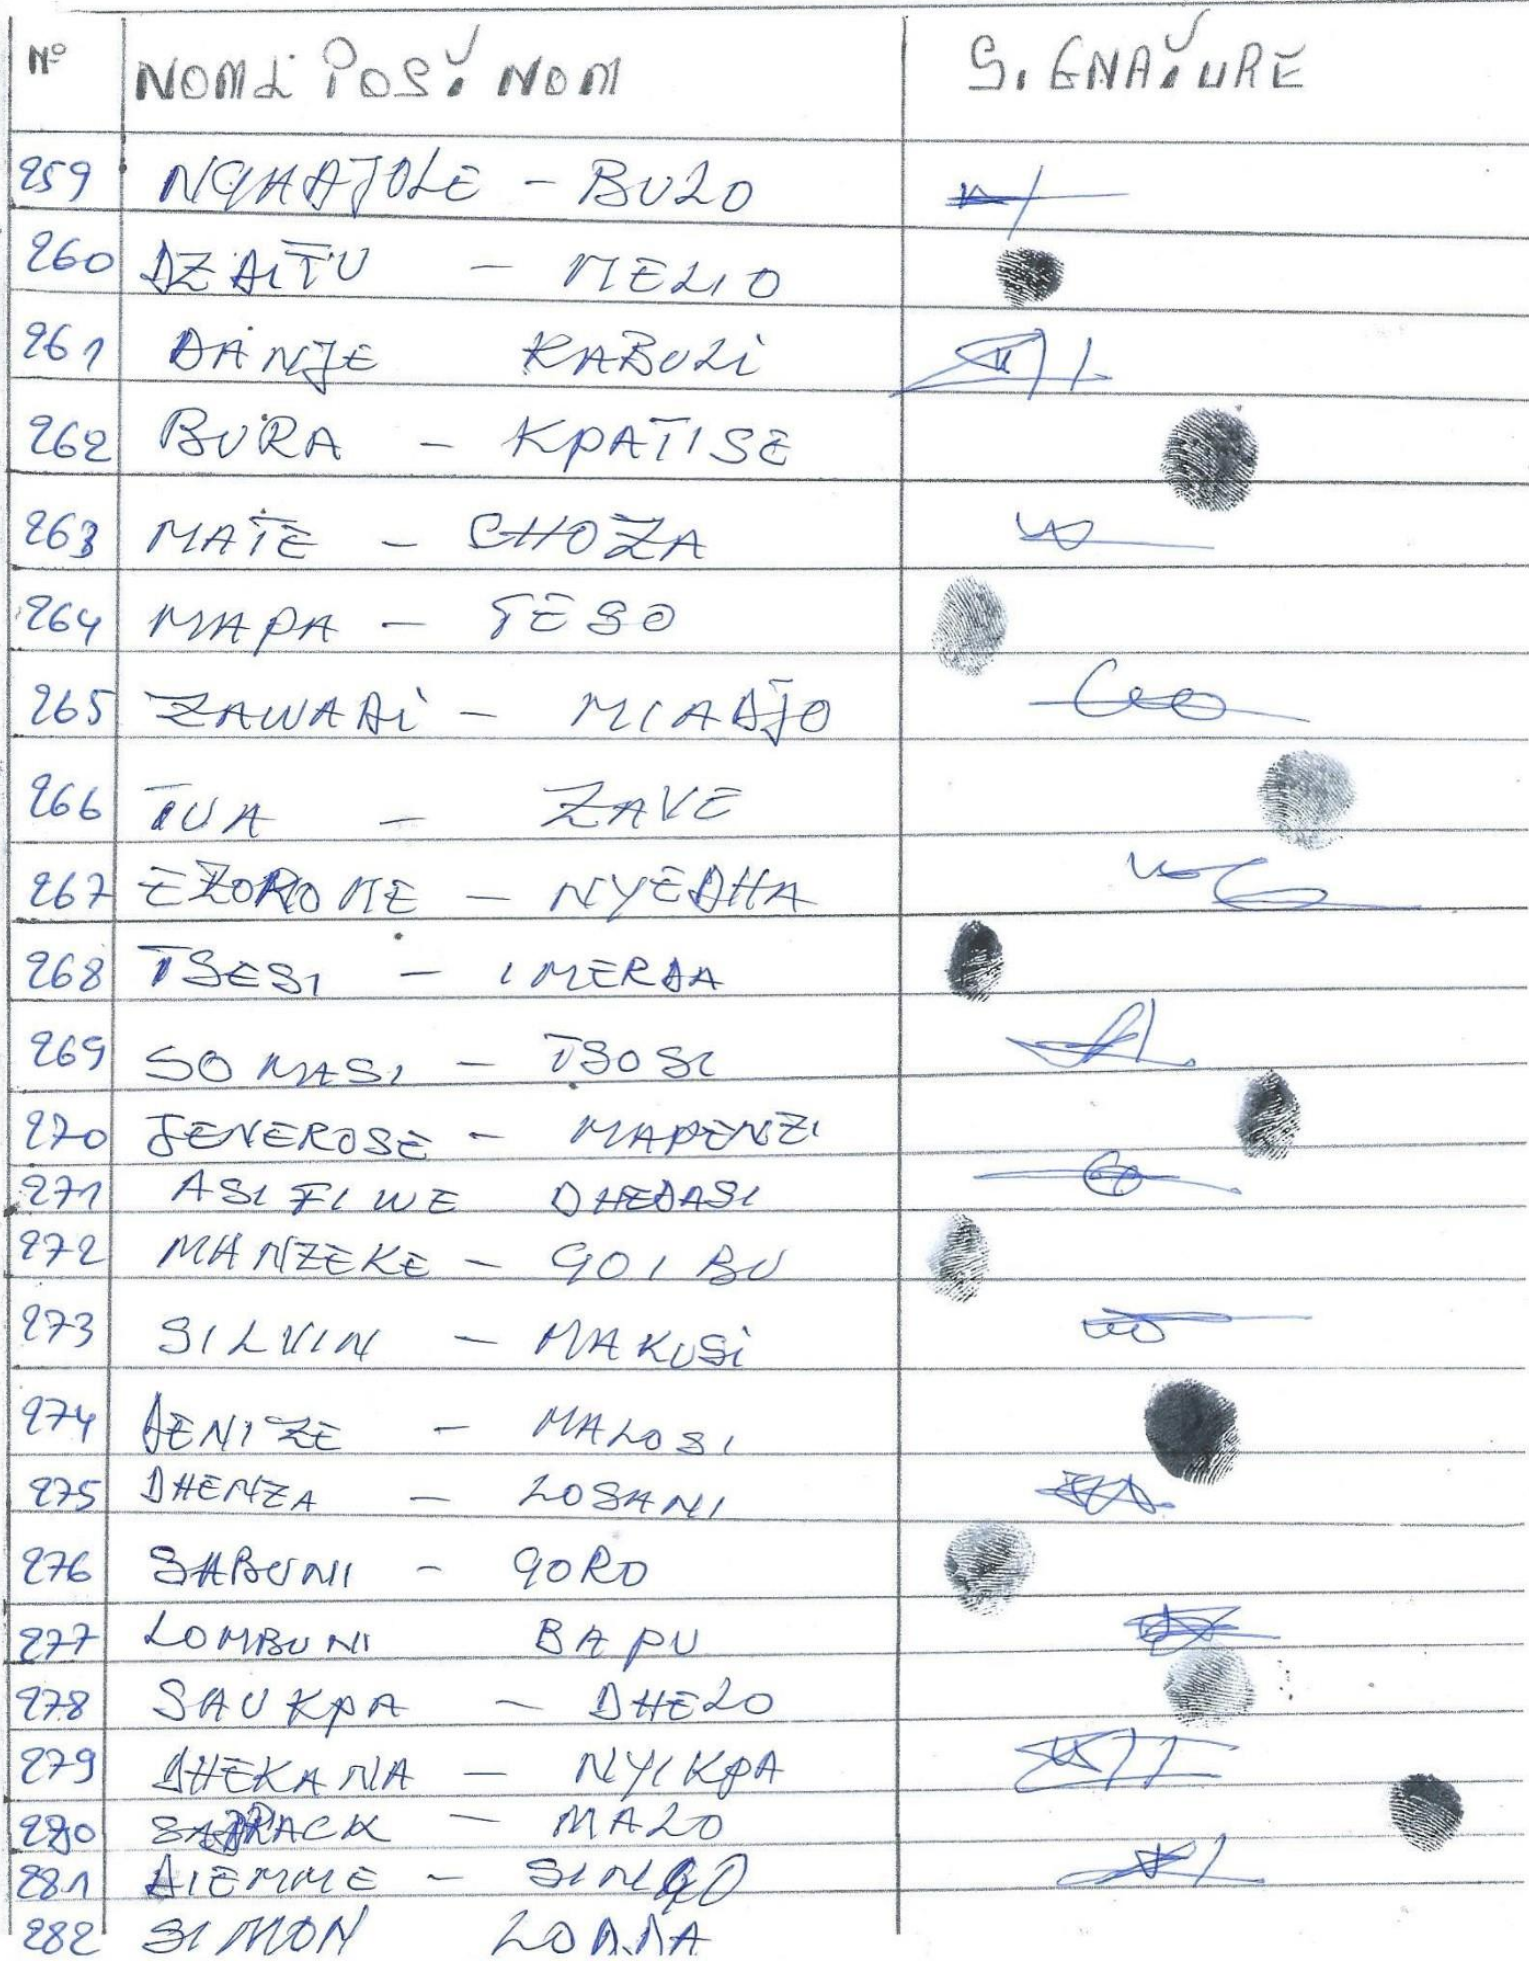 N° NOM & POST NOM SIGNATURE
259 NGHAJOLE - BULO
260 DZAITU - MELIO
261 DANJE KABULI
262 BURA - KPATISE
263 MATE - CHOZA
264 MAPA - TESO
265 ZAWADI - MIADJO
266 TUA - ZAVE
267 EZOROME - NYEDHA
268 TSESI - IMERDA
269 SOMASI - TSOSI
270 JENEROSE - MAPENZI
271 ASIFIWE DHEDASI
272 MANZEKE - GOIBU
273 SILVIN - MAKUSI
274 DENIZE - MALOSI
275 DHENZA - LOSANI
276 SABUNI - GORO
277 LOMBUNI BAPU
278 SAUKPA - DHELO
279 DHEKANA - NYIKPA
280 - MALO
281 DIEMME -
282 SIMON LODDA